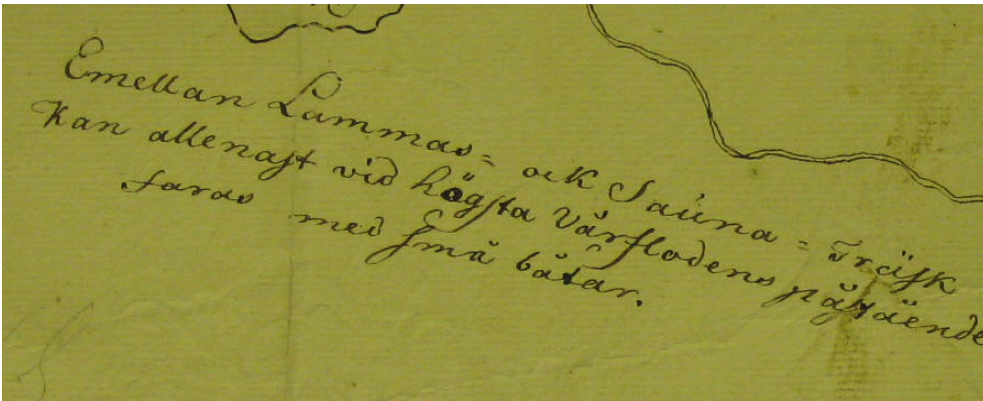 Emellan Lammas- ock Sauna-Träsk
Kan allenast vid högsta Vårflodens påstående
faras med små båtar.